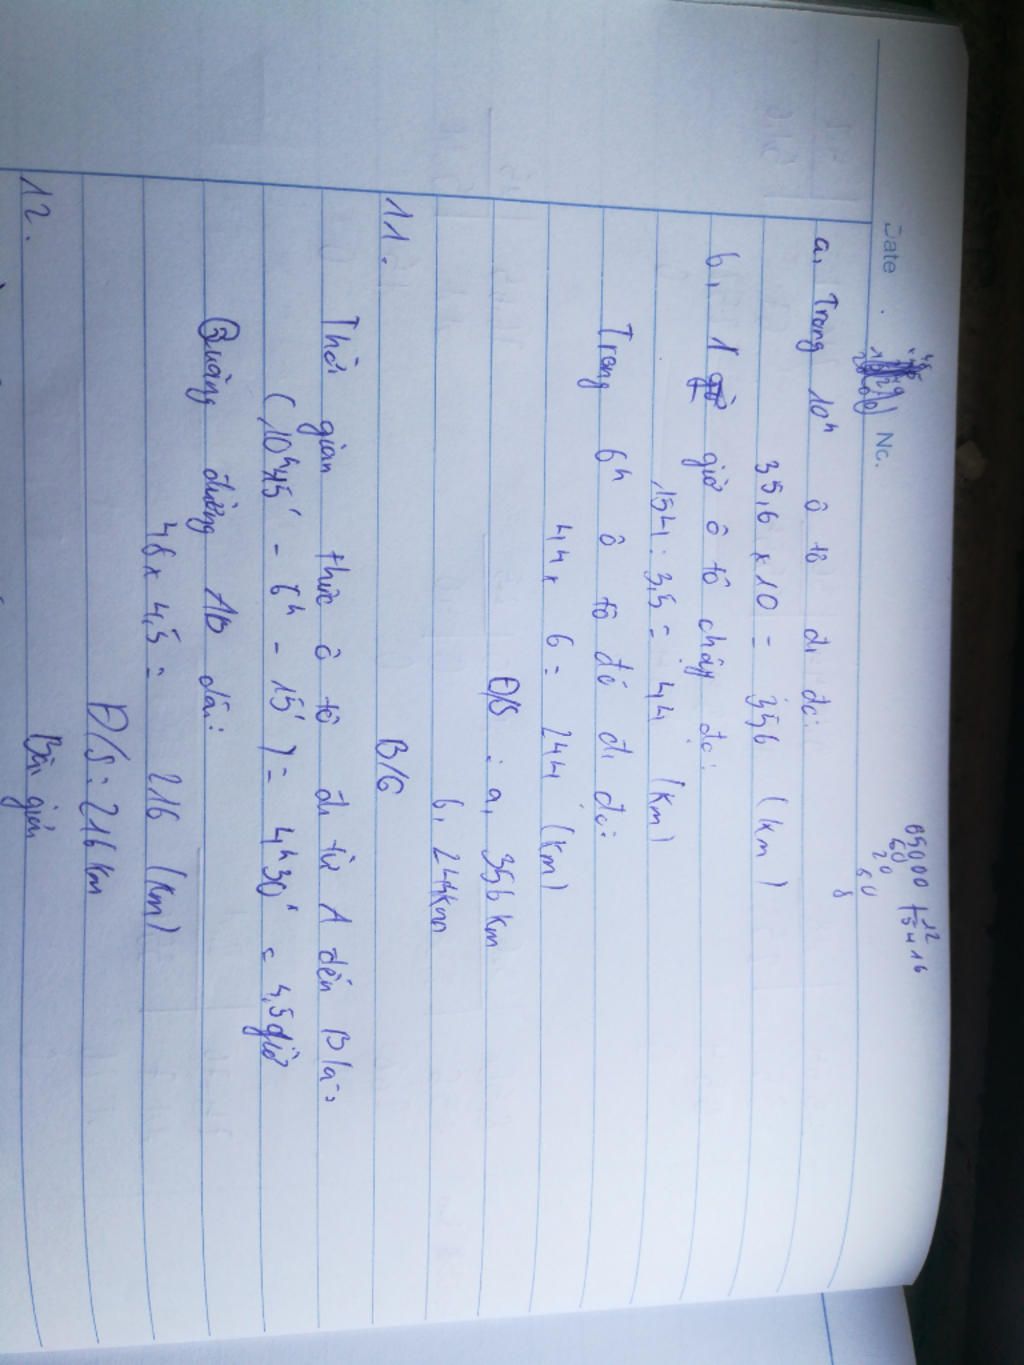 Date . No.
65000 12
60 5416
20
60
8
a, Trong 10h ô tô đi đc:
35,6 x 10 = 356 (km)
b, 1 giờ ô tô chạy đc:
154 : 3,5 = 44 (km)
Trong 6h ô tô đó đi đc:
44 x 6 = 244 (km)
Đ/S : a, 356 km
b, 244km
11. B/G
Thời gian thực ô tô đi từ A đến B là:
(10h45' - 6h - 15') = 4h30' = 4,5 giờ
Quãng đường AB dài:
48 x 4,5 = 216 (km)
Đ/S: 216 km
12. Bài giải